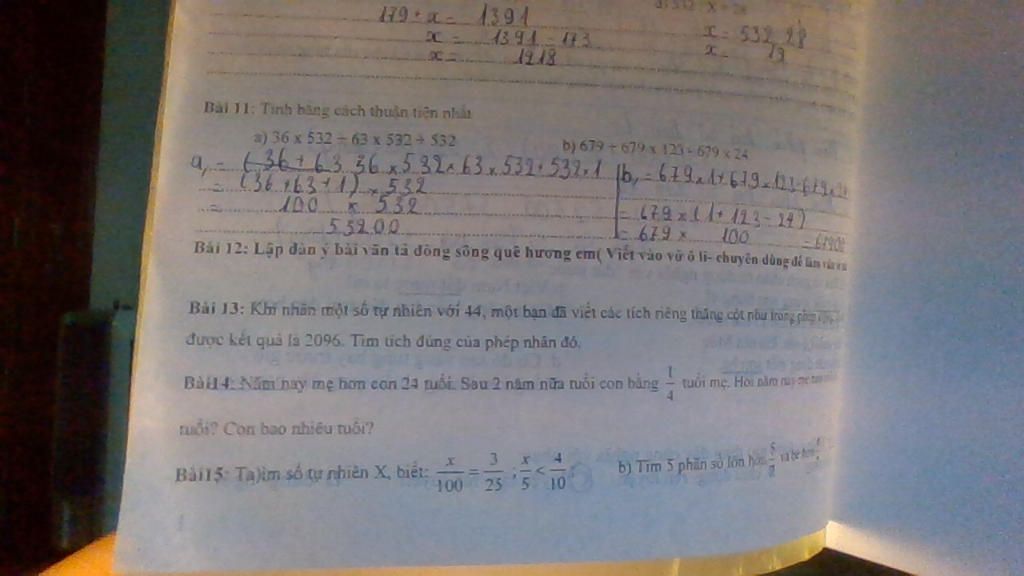 179 + x = 1391
x = 1391 - 173
x = 1218
x = 532 28
x = 19
Bài 11: Tính bằng cách thuận tiện nhất
a) 36 x 532 + 63 x 532 + 532
b) 679 + 679 x 123 - 679 x 24
a, = (36 + 63 36 x 532 x 63 x 532 + 532 x 1
= (36 + 63 + 1) x 532
= 100 x 532
53200
b, = 679 x 1 + 679 x 123 - 679 x 24
= 679 x (1 + 123 - 24)
= 679 x 100 = 67900
Bài 12: Lập dàn ý bài văn tả dòng sông quê hương em( Viết vào vở ô li- chuyên dùng để làm văn
Bài 13: Khi nhân một số tự nhiên với 44, một bạn đã viết các tích riêng thẳng cột như trong phép cộng
được kết quả là 2096. Tìm tích đúng của phép nhân đó.
Bài14: Năm nay mẹ hơn con 24 tuổi. Sau 2 năm nữa tuổi con bằng 1/4 tuổi mẹ. Hỏi năm nay mẹ
tuổi? Con bao nhiêu tuổi?
Bài15: Ta)ìm số tự nhiên X, biết: x/100 = 3/25 ; x/5 < 4/10
b) Tìm 5 phân số lớn hơn và bé hơn